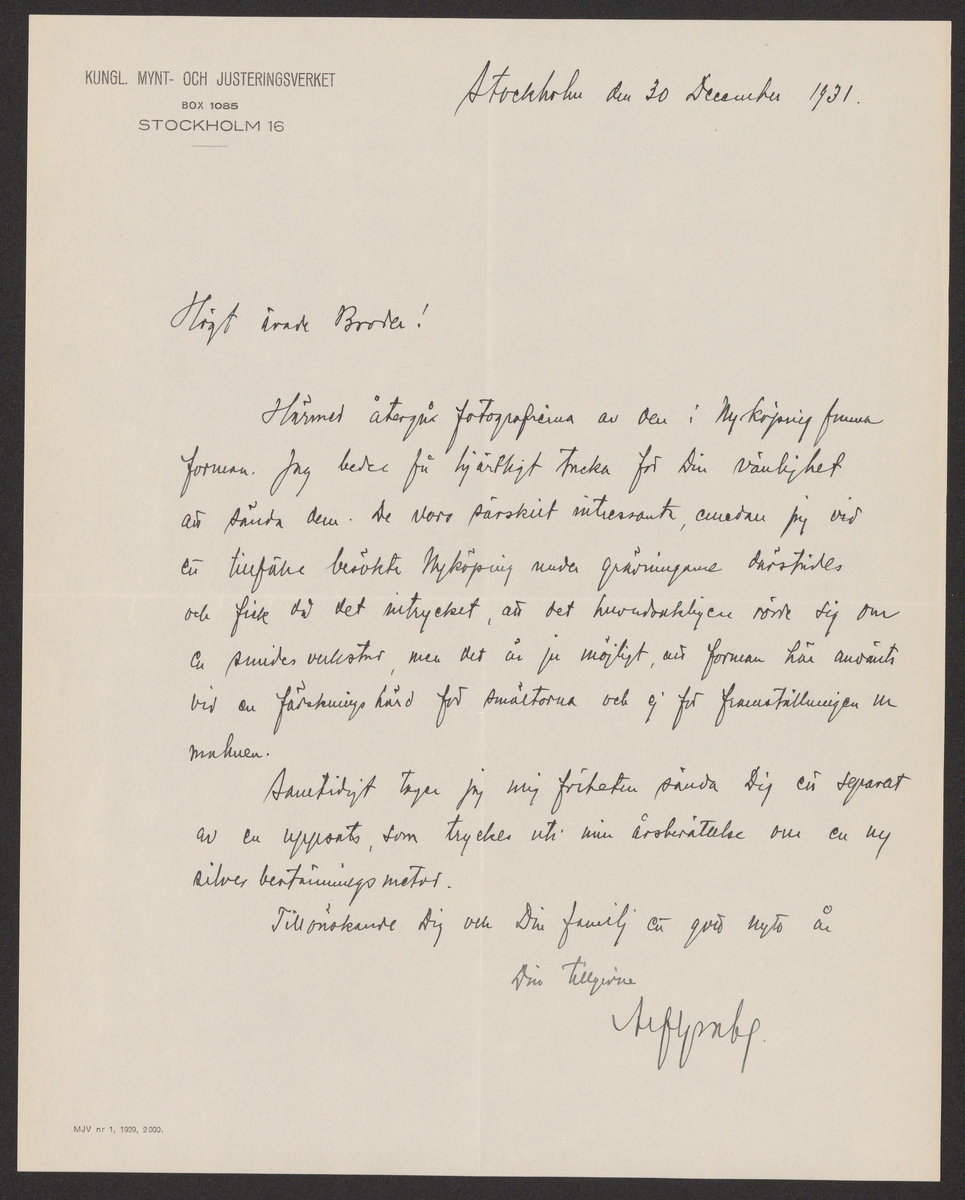 KUNGL. MYNT- OCH JUSTERINGSVERKET
BOX 1085
STOCKHOLM 16
Stockholm den 30 December 1931.
Högt ärade Broder!
Härmed återgår fotografierna av den i Nyköping funna
forman. Jag beder få hjärtligt tacka för Din vänlighet
att sända dem. De voro särskilt intressanta, emedan jag vid
ett tillfälle besökte Nyköping under grävningarne därstädes
och fick då det intrycket, att det huvudsakligen rörde sig om
en smides verkstad, men det är ju möjligt, att forman här använts
vid en färsknings härd för smältorna och ej för framställningen ur
malmen.
Samtidigt tager jag mig friheten sända Dig ett separat
av en uppsats, som tryckes uti min årsberättelse om en ny
silver bestämnings metod.
Tillönskande Dig och Din familj ett gott nytt år
Din tillgivne
MJV nr 1, 1929, 2000.